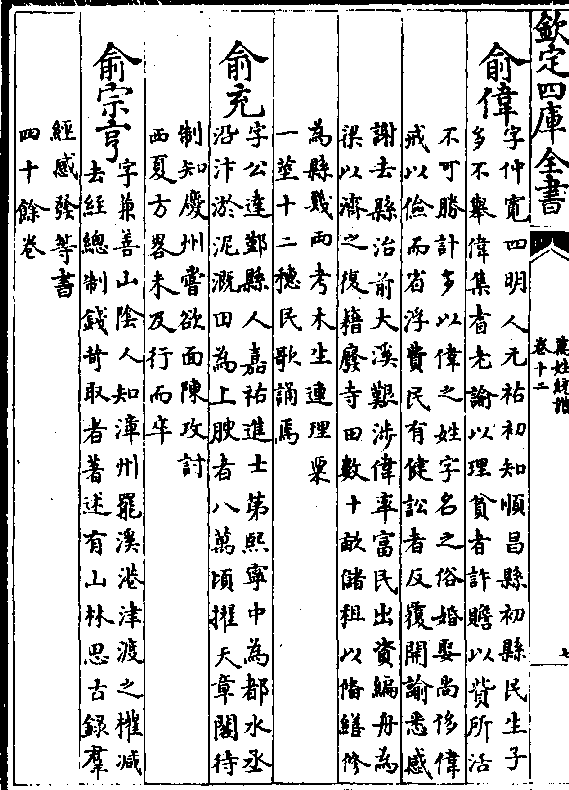 欽定四庫全書
萬姓統譜
卷十二
七
俞偉
字仲寛四明人元祐初知順昌縣初縣民生子
多不舉偉集耆老諭以理貧者許贍以貲所活
不可勝計多以偉之姓字名之俗婚娶尚侈偉
戒以儉而省浮費民有健訟者反覆開諭悉感
謝去縣治前大溪艱涉偉率富民出資編舟為
梁以濟之復籍廢寺田數十畝儲租以備繕修
為縣幾兩考木生連理粟
一莖十二穗民歌誦焉
俞充
字公達鄞縣人嘉祐進士第熙寧中為都水丞
沿汴淤泥溉田為上腴者八萬頃擢天章閣待
制知慶州嘗欲面陳攻討
西夏方畧未及行而卒
俞宗亨
字兼善山陰人知漳州罷溪港津渡之榷減
去經總制錢苛取者著述有山林思古録羣
經感發等書
四十餘卷